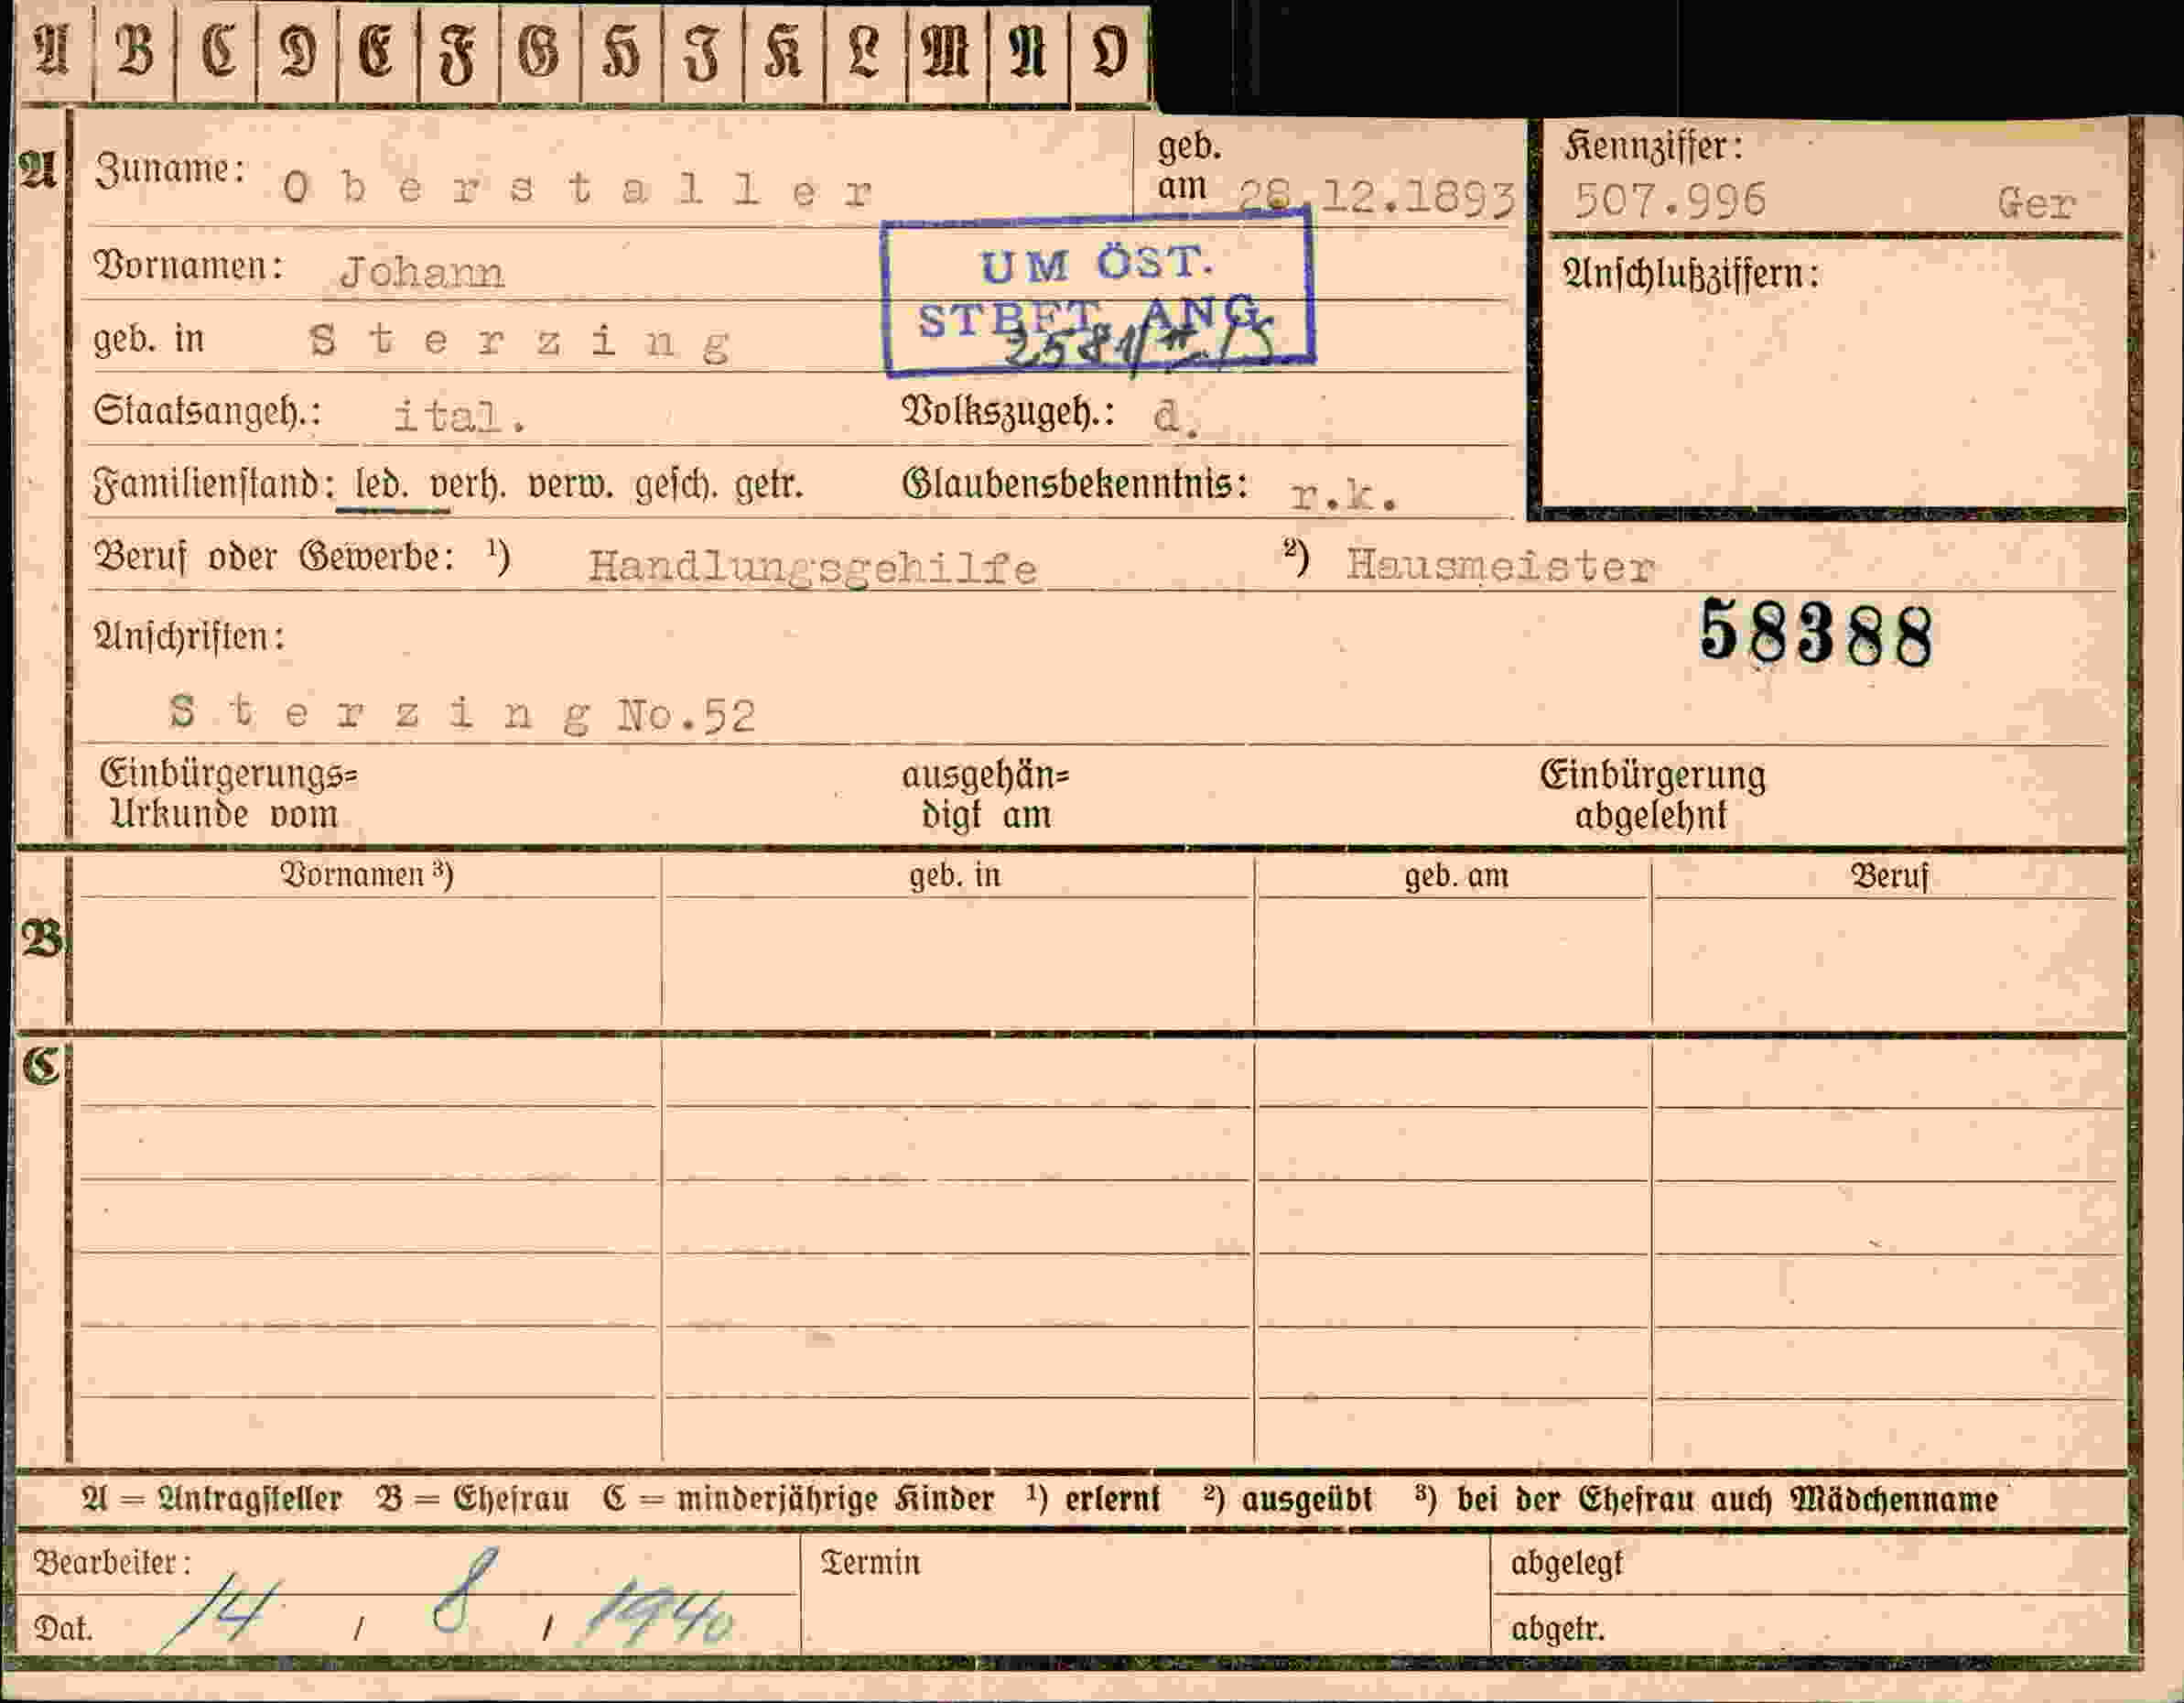 A B C D E F G H I K L M N O
A Zuname: Oberstaller geb. am 28.12.1893 Kennziffer: 507.996 Ger
Vornamen: Johann UM ÖST. Anschlußziffern:
geb. in Sterzing STBFT. ANG.
Staatsangeh.: ital. Volkszugeh.: d.
Familienstand: led. verh. verw. gesch. getr. Glaubensbekenntnis: r.k.
Beruf oder Gewerbe: ¹) Handlungsgehilfe ²) Hausmeister
Anschriften: 58388
Sterzing No.52
Einbürgerungs= ausgehän= Einbürgerung
Urkunde vom digt am abgelehnt
Vornamen ³) geb. in geb. am Beruf
B
C
A = Antragsteller B = Ehefrau C = minderjährige Kinder ¹) erlernt ²) ausgeübt ³) bei der Ehefrau auch Mädchenname
Bearbeiter: Termin abgelegt
Dat. 14 / 8 / 1940 abgetr.